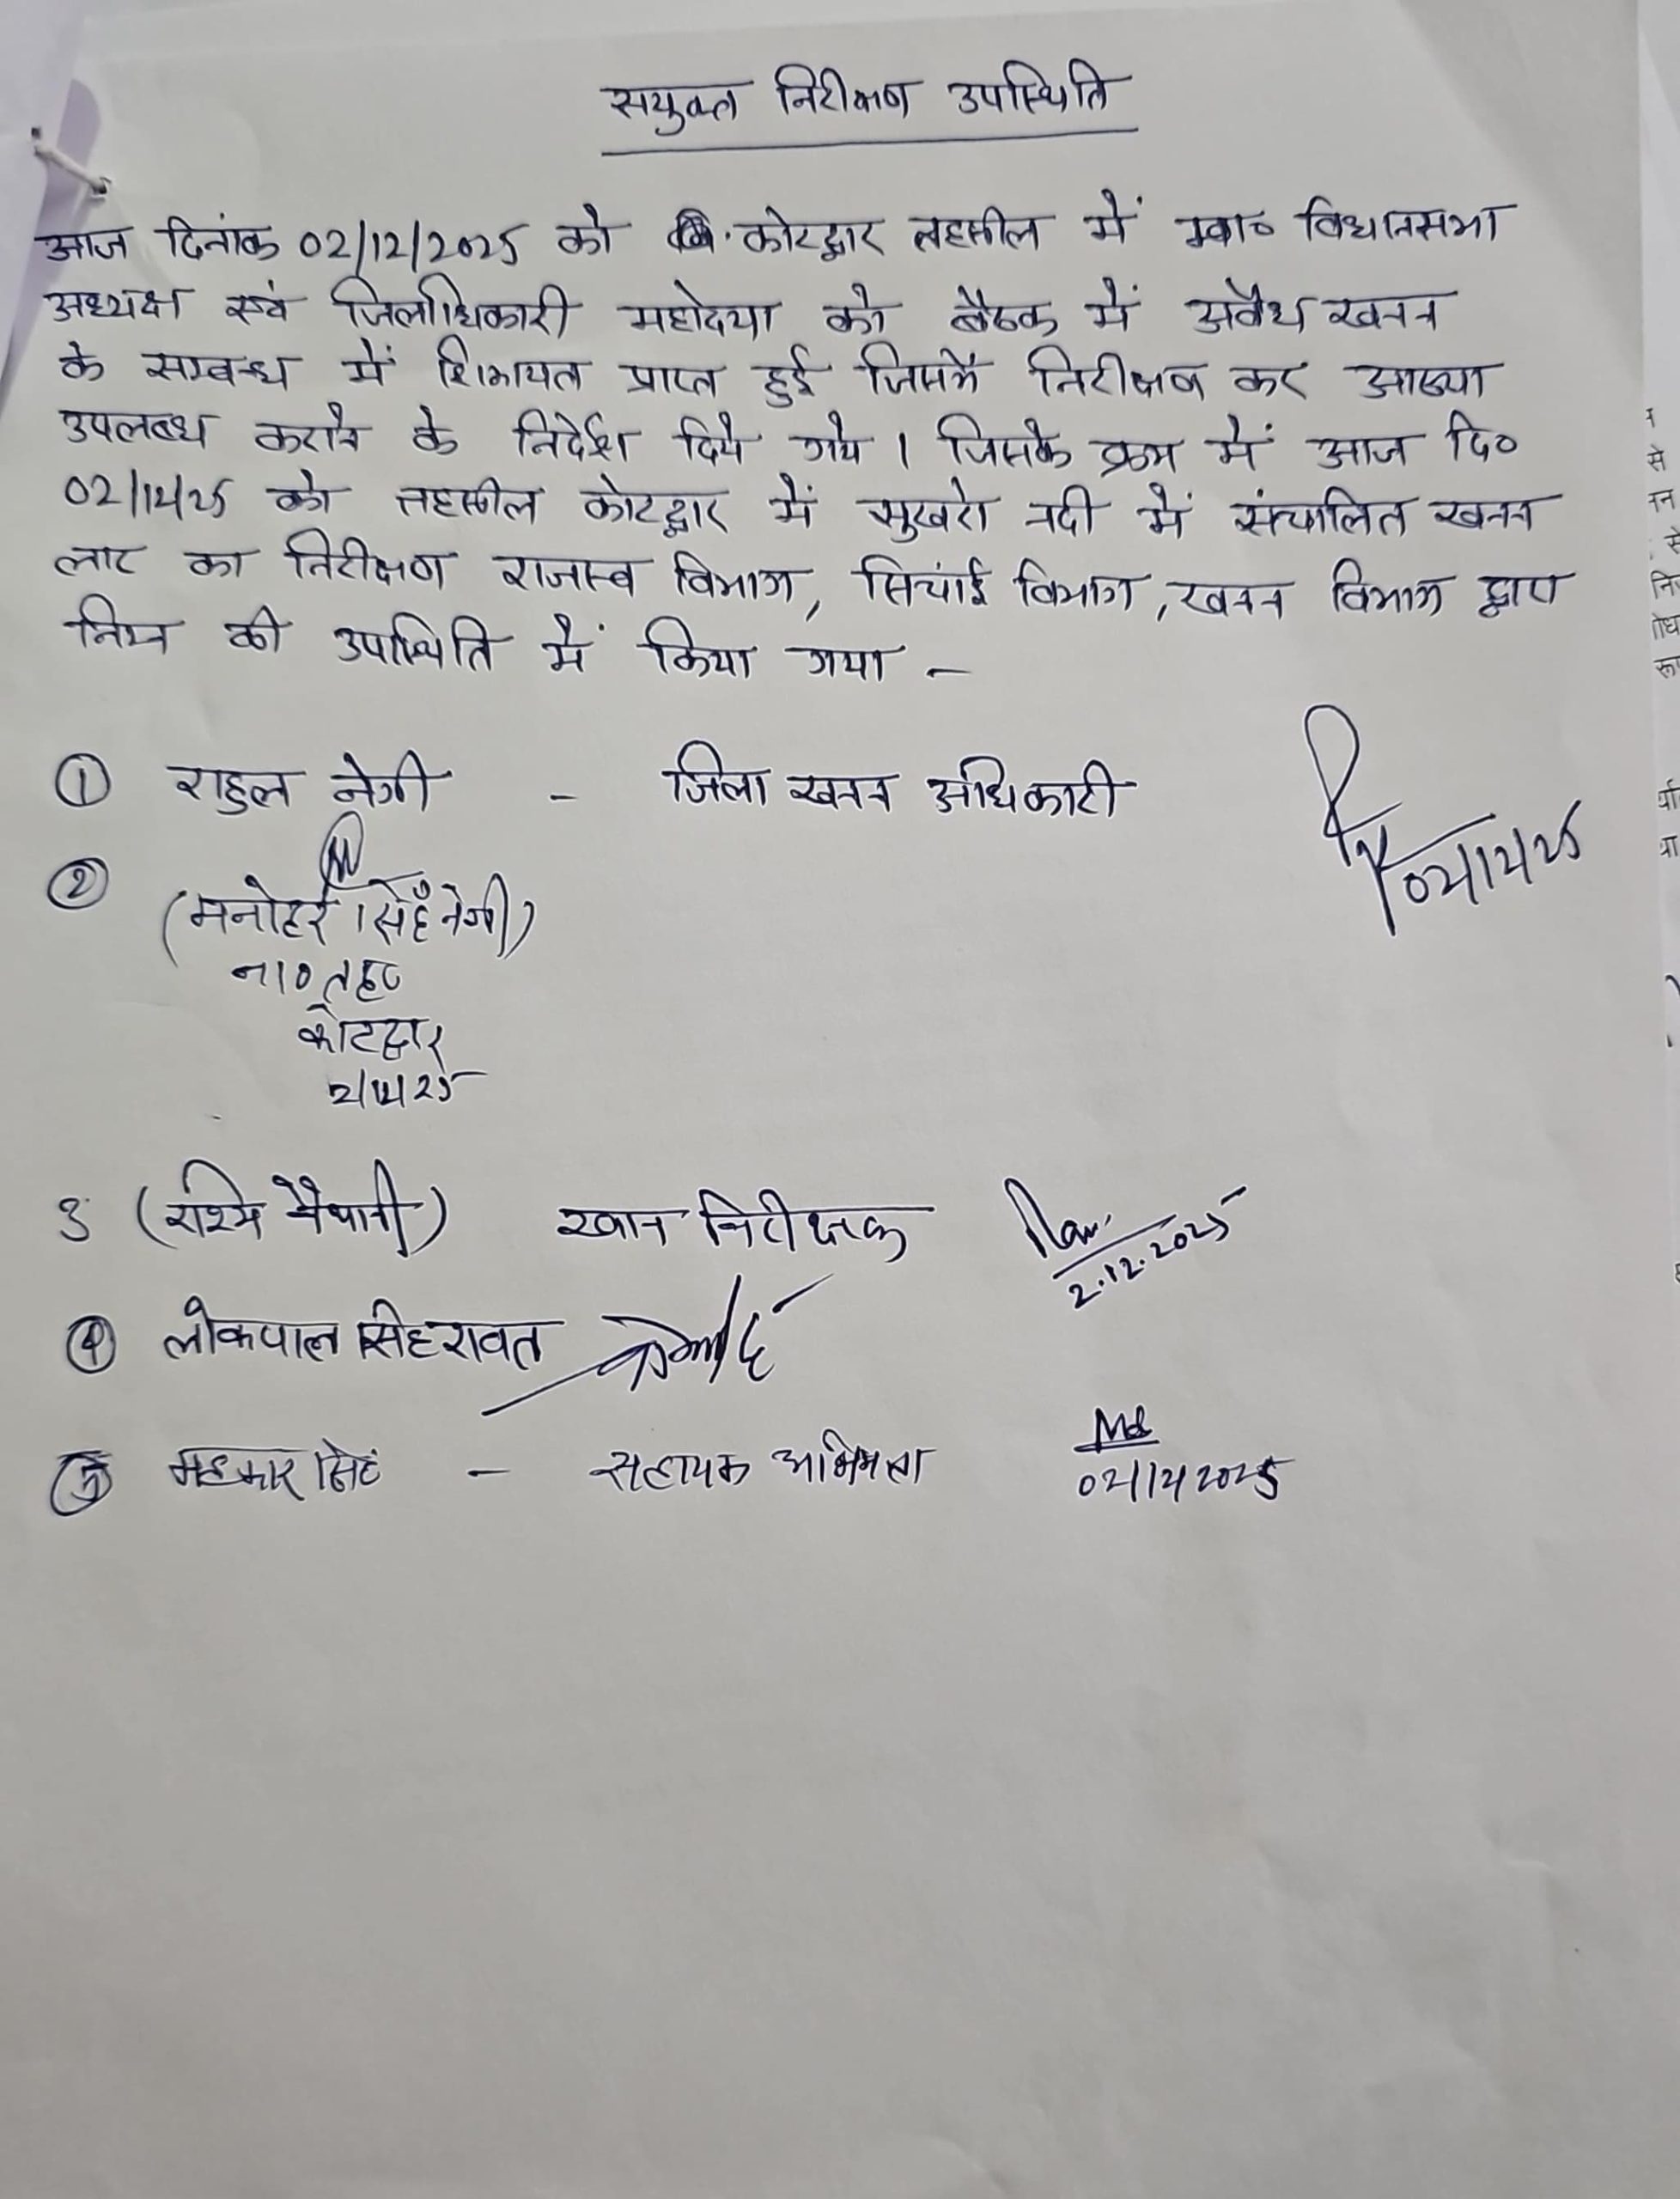 सयुक्त निरीक्षण उपस्थिति
आज दिनांक 02/12/2025 को कोटद्वार तहसील में मा० विधानसभा
अध्यक्ष एवं जिलाधिकारी महोदया की बैठक में अवैध खनन
के सम्बन्ध में शिकायत प्राप्त हुई जिसमें निरीक्षण कर आख्या
उपलब्ध कराने के निर्देश दिये गये । जिसके क्रम में आज दि०
02/12/25 को तहसील कोटद्वार में सुखरो नदी में संचालित खनन
लाट का निरीक्षण राजस्व विभाग, सिचांई विभाग, खनन विभाग द्वारा
निम्न की उपस्थिति में किया गया –
① राहुल नेगी – जिला खनन अधिकारी
02/12/25
②
(मनोहर सिंह नेगी)
ना० तह०
कोटद्वार
2/12/25
3 (रश्मि) खान निरीक्षक
2.12.2025
④ लोकपाल सिंह रावत
⑤ सिंह – सहायक अभियन्ता
02/12/2025